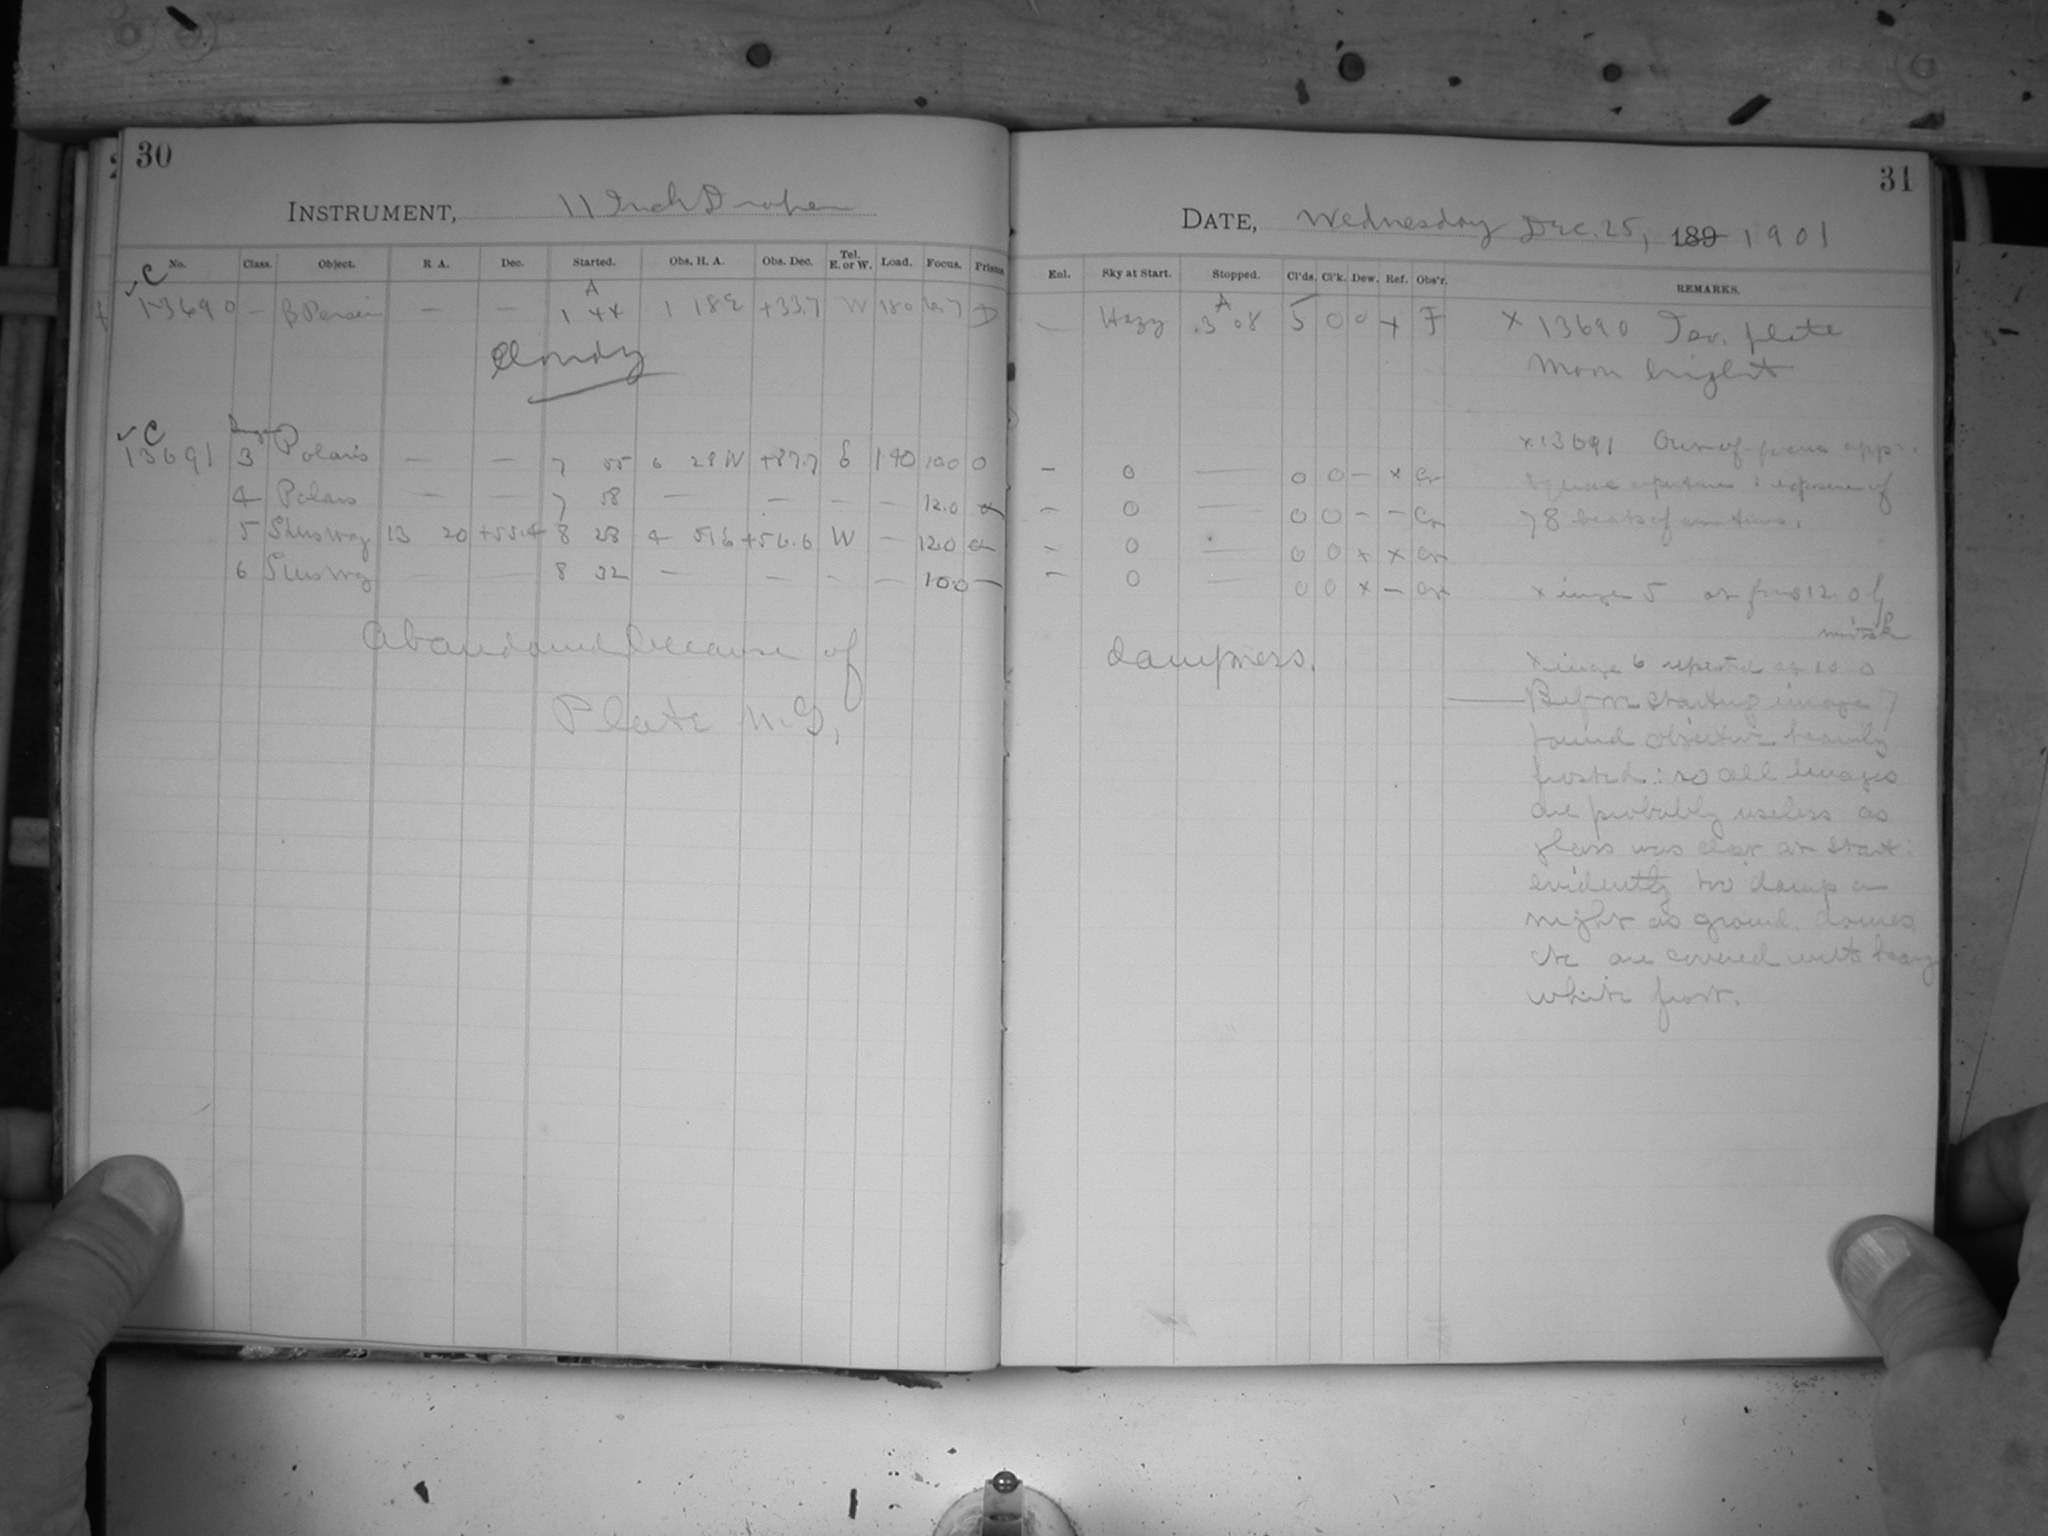 30
INSTRUMENT, 11 Inch Draper
No. Class. Object. R. A. Dec. Started. Obs. H. A. Obs. Dec. Tel. E. or W. Load. Focus. Prisms.
✓ C
13690 — β Persei — — 1 44 A 1 18 E +33.7 W 180 D
Cloudy
✓ C
13691 3 Polaris — — 7 55 6 28 W +87.7 E 190 10.0 0
4 Polaris — — 7 58 — — — — 12.0
5 13 20 +55.4 8 28 4 51.6 +56.6 W — 12.0
6 — — 8 32 — — — — 10.0 —
Abandoned because of
Plate N.G.
31
DATE, Wednesday Dec. 25, 189 1901
Enl. Sky at Start. Stopped. Cl'ds. Cl'k. Dew. Ref. Obs'r. REMARKS.
— Hazy 3 08 A 5 0 0 + F × 13690 Iso. plate
Moon bright
× 13691 Out of focus app.
— 0 — 0 0 — × Cr square aperture : exposure of
— 0 — 0 0 — — Cr 78 beats of
— 0 — 0 0 × × Cr
— 0 — 0 0 × — Cr × image 5 at focus 12.0 by
mistake
dampness.
× image 6 repeated at 10.0
— Before starting image 7
found objective heavily
frosted : so all images
are probably useless as
glass was clear at start :
evidently too damp a
night as ground, domes
etc are covered with heavy
white frost.